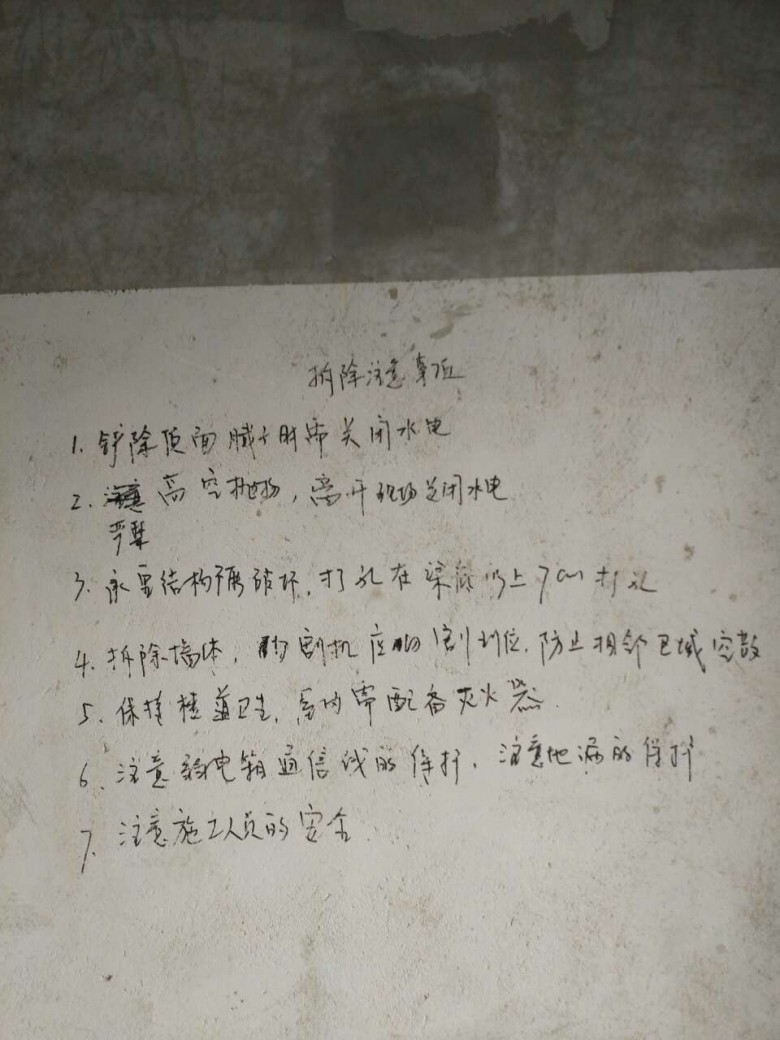 拆除注意事项
1. 铲除顶面腻子时需关闭水电
2. 高空抛物，离开现场关闭水电
严禁
3. 承重结构不得破坏，打孔在梁底以上7cm打孔
4. 拆除墙体，切割机应切割到位，防止相邻区域空鼓
5. 保持楼道卫生，室内需配备灭火器
6. 注意弱电箱通信线的保护，注意地漏的保护
7. 注意施工人员的安全